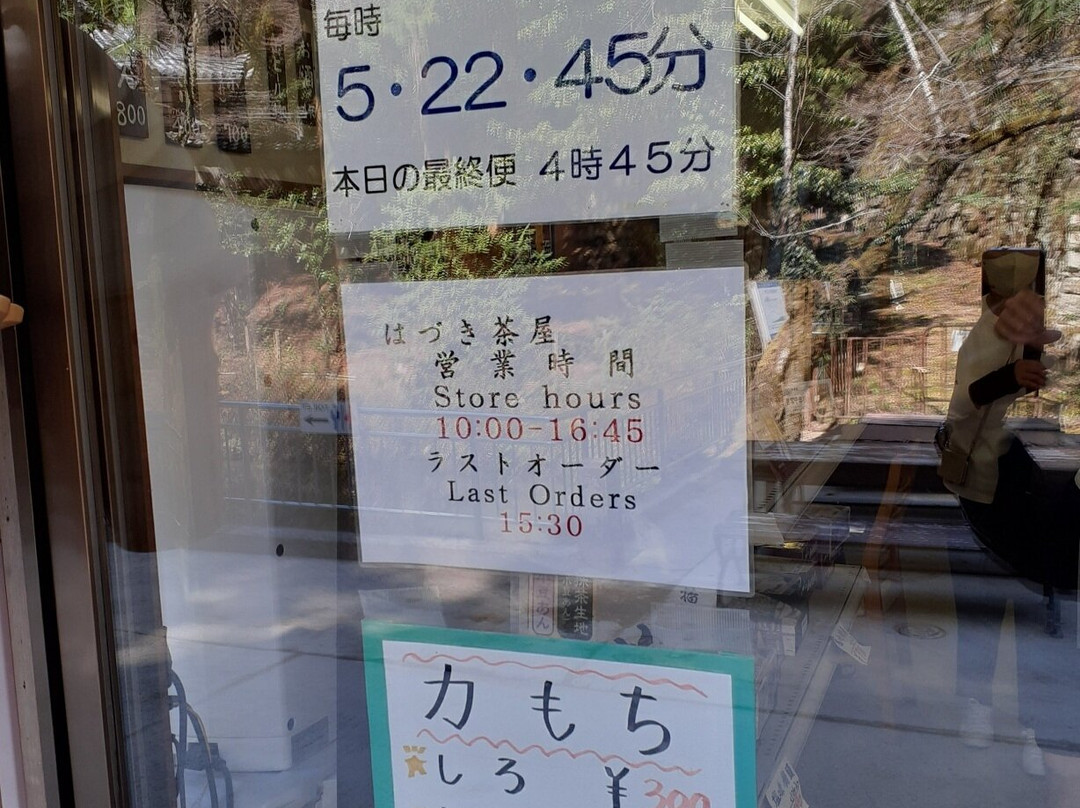 毎時
5・22・45分
本日の最終便 4時45分
800
はづき茶屋
営業時間
Store hours
10:00-16:45
ラストオーダー
Last Orders
15:30
力もち
しろ ¥300